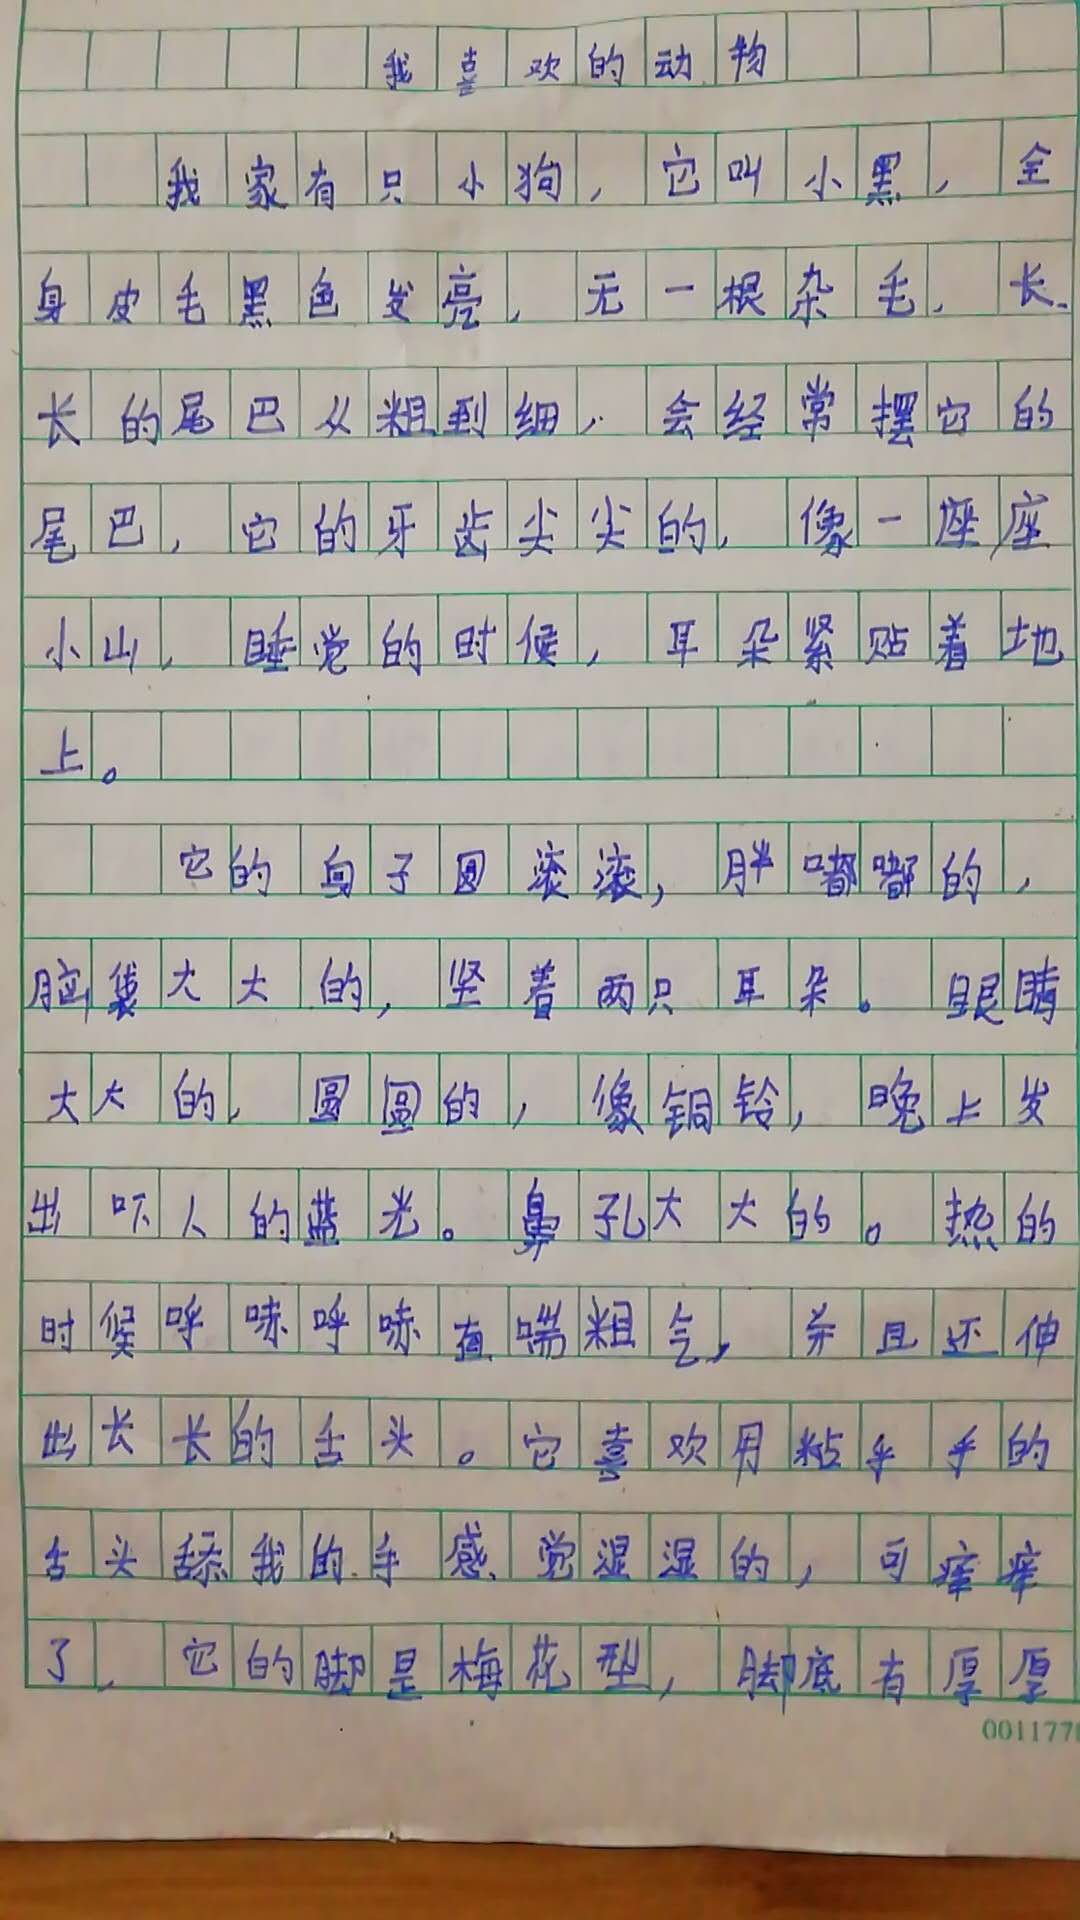 我喜欢的动物
我家有只小狗，它叫小黑，全
身皮毛黑色发亮，无一根杂毛，长
长的尾巴从粗到细，会经常摆它的
尾巴，它的牙齿尖尖的，像一座座
小山，睡觉的时候，耳朵紧贴着地
上。
它的身子圆滚滚，胖嘟嘟的，
脑袋大大的，坚着两只耳朵。眼睛
大大的，圆圆的，像铜铃，晚上发
出吓人的蓝光。鼻孔大大的。热的
时候呼哧呼哧直喘粗气，并且还伸
出长长的舌头。它喜欢用粘乎乎的
舌头舔我的手感觉湿湿的，可痒痒
了，它的脚是梅花型，脚底有厚厚
001177